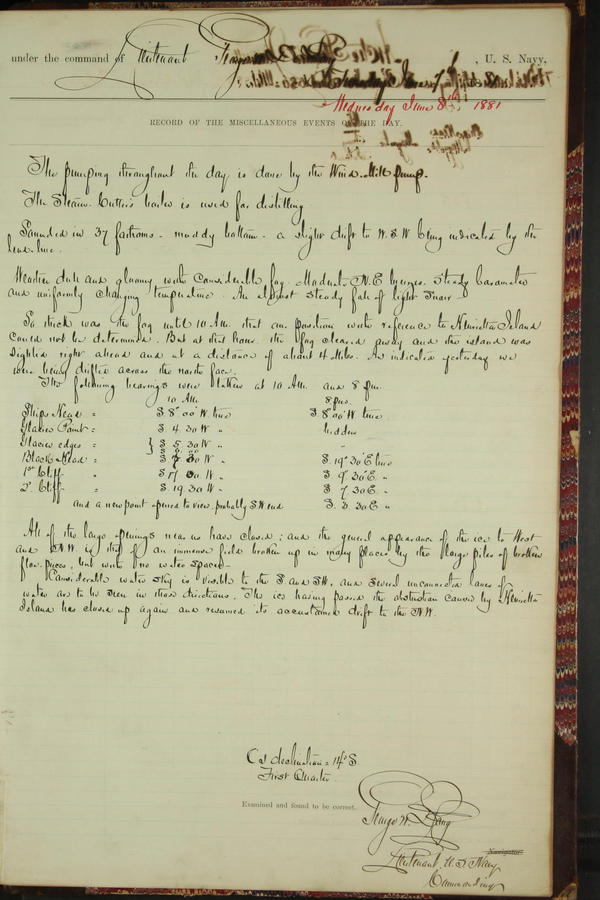 under the command of Lieutenant George W. De Long, U. S. Navy,
Wednesday June 8th 1881
RECORD OF THE MISCELLANEOUS EVENTS OF THE DAY.
The pumping throughout the day is done by the Wind-Mill pump.
The Steam-Cutter's boiler is used for distilling
Sounded in 37 fathoms - muddy bottom - a slight drift to W.S.W being indicated by the
lead-line.
Weather dull and gloomy with considerable fog. Moderate N.E breezes. Steady barometer
and uniformly changing temperature. An almost steady fall of light snow -
So thick was the fog until 10 AM. that our position with reference to Henrietta Island
could not be determined. But at that hour the fog cleared away and the island was
sighted right ahead and at a distance of about 4 miles. As indicated yesterday we
were being drifted across the north face.
The following bearings were taken at 10 A.M. and 8 pm.
10 AM. 8 pm.
Ships Head = S 8° 00' W true S 8° 00' W true
Glacier Point = S 4 30 W " hidden
Glacier edges = } S 5 30 W " "
Black Head = 30 W " S 19° 30' E true
1st Cliff = S 17 30 W " S 9° 30' E "
2d Cliff = S 19 30 W " S 7 30 E "
and a new point opened to view. probably SW end S 3 30 E "
All of the large openings near us have closed; and the general appearance of the ice to West
and NW is that of an immense field broken up in many places by the large piles of broken
floe-pieces, but with no water spaces -
Considerable water sky is visible to the S and SW, and several unconnected lanes of
water are to be seen in those directions. The ice having passed the obstruction caused by Henrietta
Island has closed up again and resumed its accustomed drift to the N.W.
Cs declination = 14° S
First Quarter
Examined and found to be correct.
George W. De Long
Navigator.
Lieutenant, U.S. Navy
Commanding